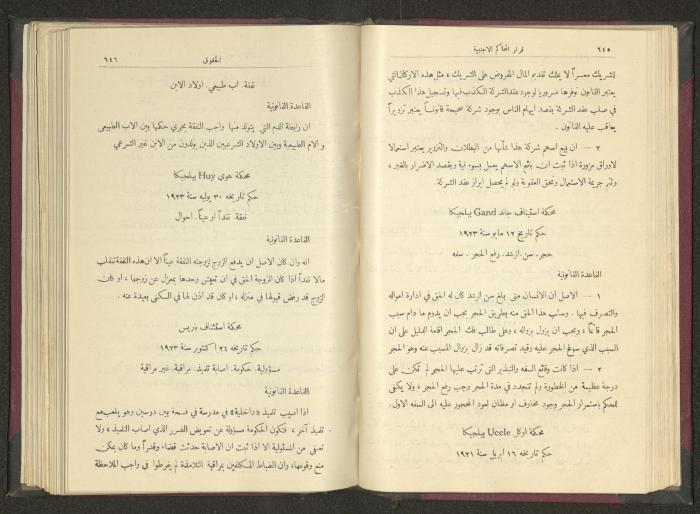 ٦٤٥ قرار المحاكم الاجنبية
للشريك معسراً لا يملك تقديم المال المفروض على الشريك ، مثل هذه الاركان التي
يعتبر القانون توفرها ضروريا لوجود عقد الشركة الكذب فيها وتسجيل هذا الكذب
في صلب عقد الشركة بقصد ايهام الناس بوجود شركة صحيحة قانوناً يعتبر تزويراً
يعاقب عليه القانون .
٢ — ان بيع اسهم شركة هذا شأنها من البطلان والتزوير يعتبر استعمالا
لاوراق مزورة اذا ثبت ان بائع الاسهم يعمل بسوء نية وبقصد الاضرار بالغير ،
وتتم جريمة الاستعمال وتحق العقوبة ولو لم يحصل ابراز عقد الشركة.
محكمة استيناف جاند Gand ببلجيكا
حكم تاريخ ١٢ مايو سنة ١٩٢٣
حجر. سن. الرشد. رفع الحجر . سفه
القاعدة القانونية
١ — الاصل ان الانسان متى بلغ سن الرشد كان له الحق في ادارة امواله
والتصرف فيها . وسلب هذا الحق منه بطريق الحجر يجب ان يدوم ما دام سبب
الحجر قائماً ، ويجب ان يزول بزواله ، وعلى طالب فك الحجر اقامة الدليل على ان
السبب الذي سوغ الحجر عليه وقيد تصرفاته قد زال بزوال المسبب عنه وهو الحجر
٢ — اذا كانت وقائع السفه والتبذير التي ترتب عليها الحجر لم تكن على
درجة عظيمة من الخطورة ولم تتجدد في مدة الحجر وجب رفع الحجر ، ولا يكفي
للحكم باستمرار الحجر وجود مخاوف او مظان لعود المحجور عليه الى السفه الاول.
محكمة اوكل Uccle ببلجيكا
حكم تاريخه ١٦ ابريل سنة ١٩٢١
الحقوق ٦٤٦
نفقة. اب طبيعي. اولاد الابن
القاعدة القانونية
ان رابطة الدم التي يتولد منها واجب النفقة يجري حكمها بين الاب الطبيعي
و الام الطبيعية وبين الاولاد الشرعيين الذين يولدون من الابن غير الشرعي
محكمة هوى Huy ببلجيكا
حكم تاريخه ٣٠ يوليه سنة ١٩٢٣
نفقة. نقداً او عيناً. احوال
القاعدة القانونية
انه وان كان الاصل ان يدفع الزوج لزوجته النفقة عيناً الا ان هذه النفقة تنقلب
مالا نقداً اذا كان الزوجة الحق في ان تعيش وحدها بمعزل عن زوجها ، او كان
الزوج قد رفض قبولها في منزله ، او كان قد اذن لها في السكنى بعيدة عنه .
محكمة استئناف باريس
حكم تاريخه ٢٤ اكتوبر سنة ١٩٢٣
مسؤولية. حكومة. اصابة تلميذ. مراقبة. غير مراقبة
القاعدة القانونية
اذا اصيب تلميذ «داخلية» في مدرسة في فسحة بين دوسين وهو يلعب مع
تلميذ آخر ، فتكون الحكومة مسؤولة عن تعويض الضرر الذي اصاب التلميذ ، ولا
تعفى من المسئولية الا اذا ثبت ان الاصابة حدثت قضاء وقدراً وما كان يمكن
منع وقوعها، وان الضباط المكلفين بمراقبة التلامذة لم يفرطوا في واجب الملاحظة